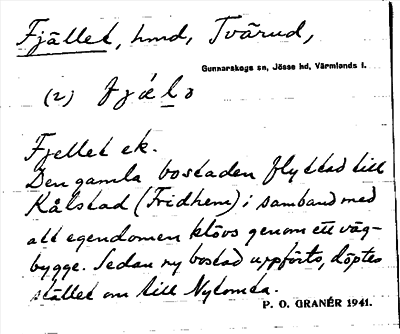 Fjället, hmd, Tvärud,
Gunnarskogs sn, Jösse hd, Värmlands l.
(2) fjälə
Fjellet ek.
Den gamla bostaden flyttad till
Kålstad (Fridhem) i samband med
att egendomen klövs genom ett väg-
bygge. Sedan ny bostad uppförts, döptes
stället om till Nytomta.
P. O. GRANÉR 1941.